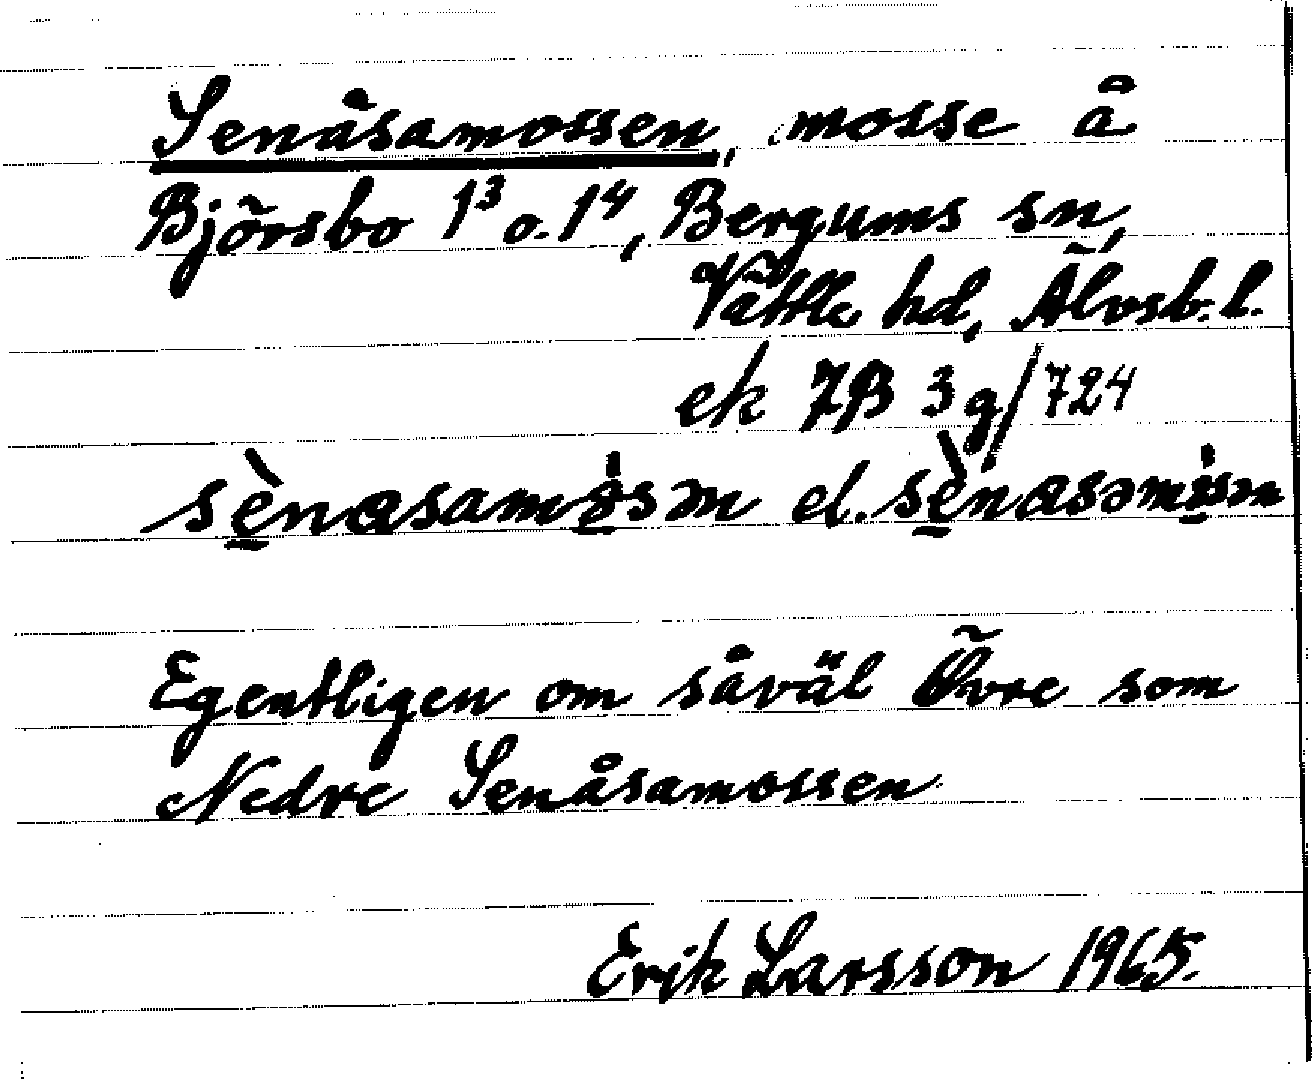 Senåsamossen, mosse å
Björsbo 1³ o. 1⁴, Bergums sn,
Vättle hd, Älvsb. l.
ek 7B 3g/724
sè̠nasamȯ̠sən el. sè̠nasəmȯ̠sən
Egentligen om såväl Övre som
Nedre Senåsamossen
Erik Larsson 1965.